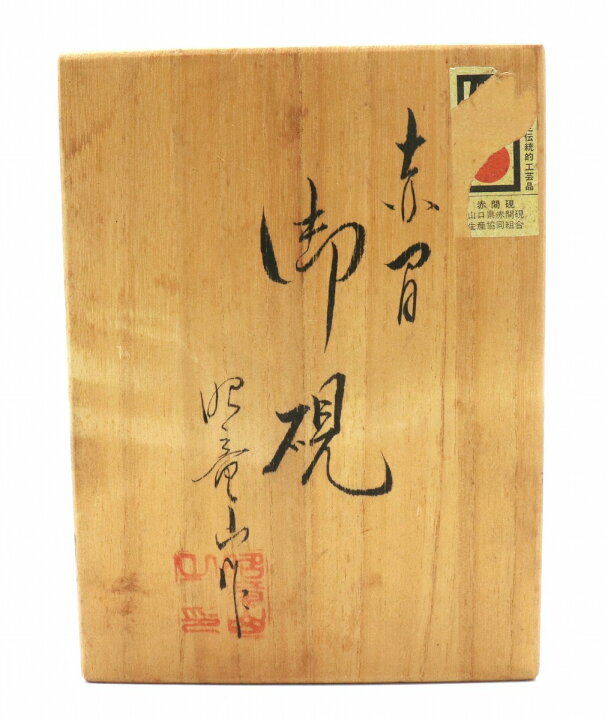 赤間
御硯
昭竜山作
伝統的工芸品
赤間硯
山口県赤間硯
生産協同組合